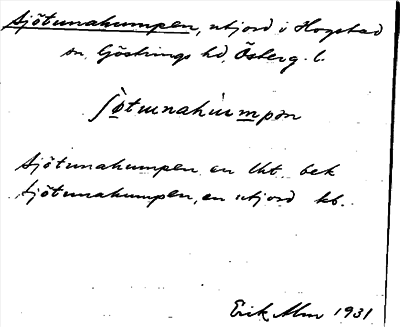 Sjötunahumpen, utjord i Hogstad
sn, Göstrings hd, Österg. l.
ʃötunahumpən
Sjötunahumpen en lht. bek
Sjötunahumpen, en utjord kb.
Erik Alm 1931